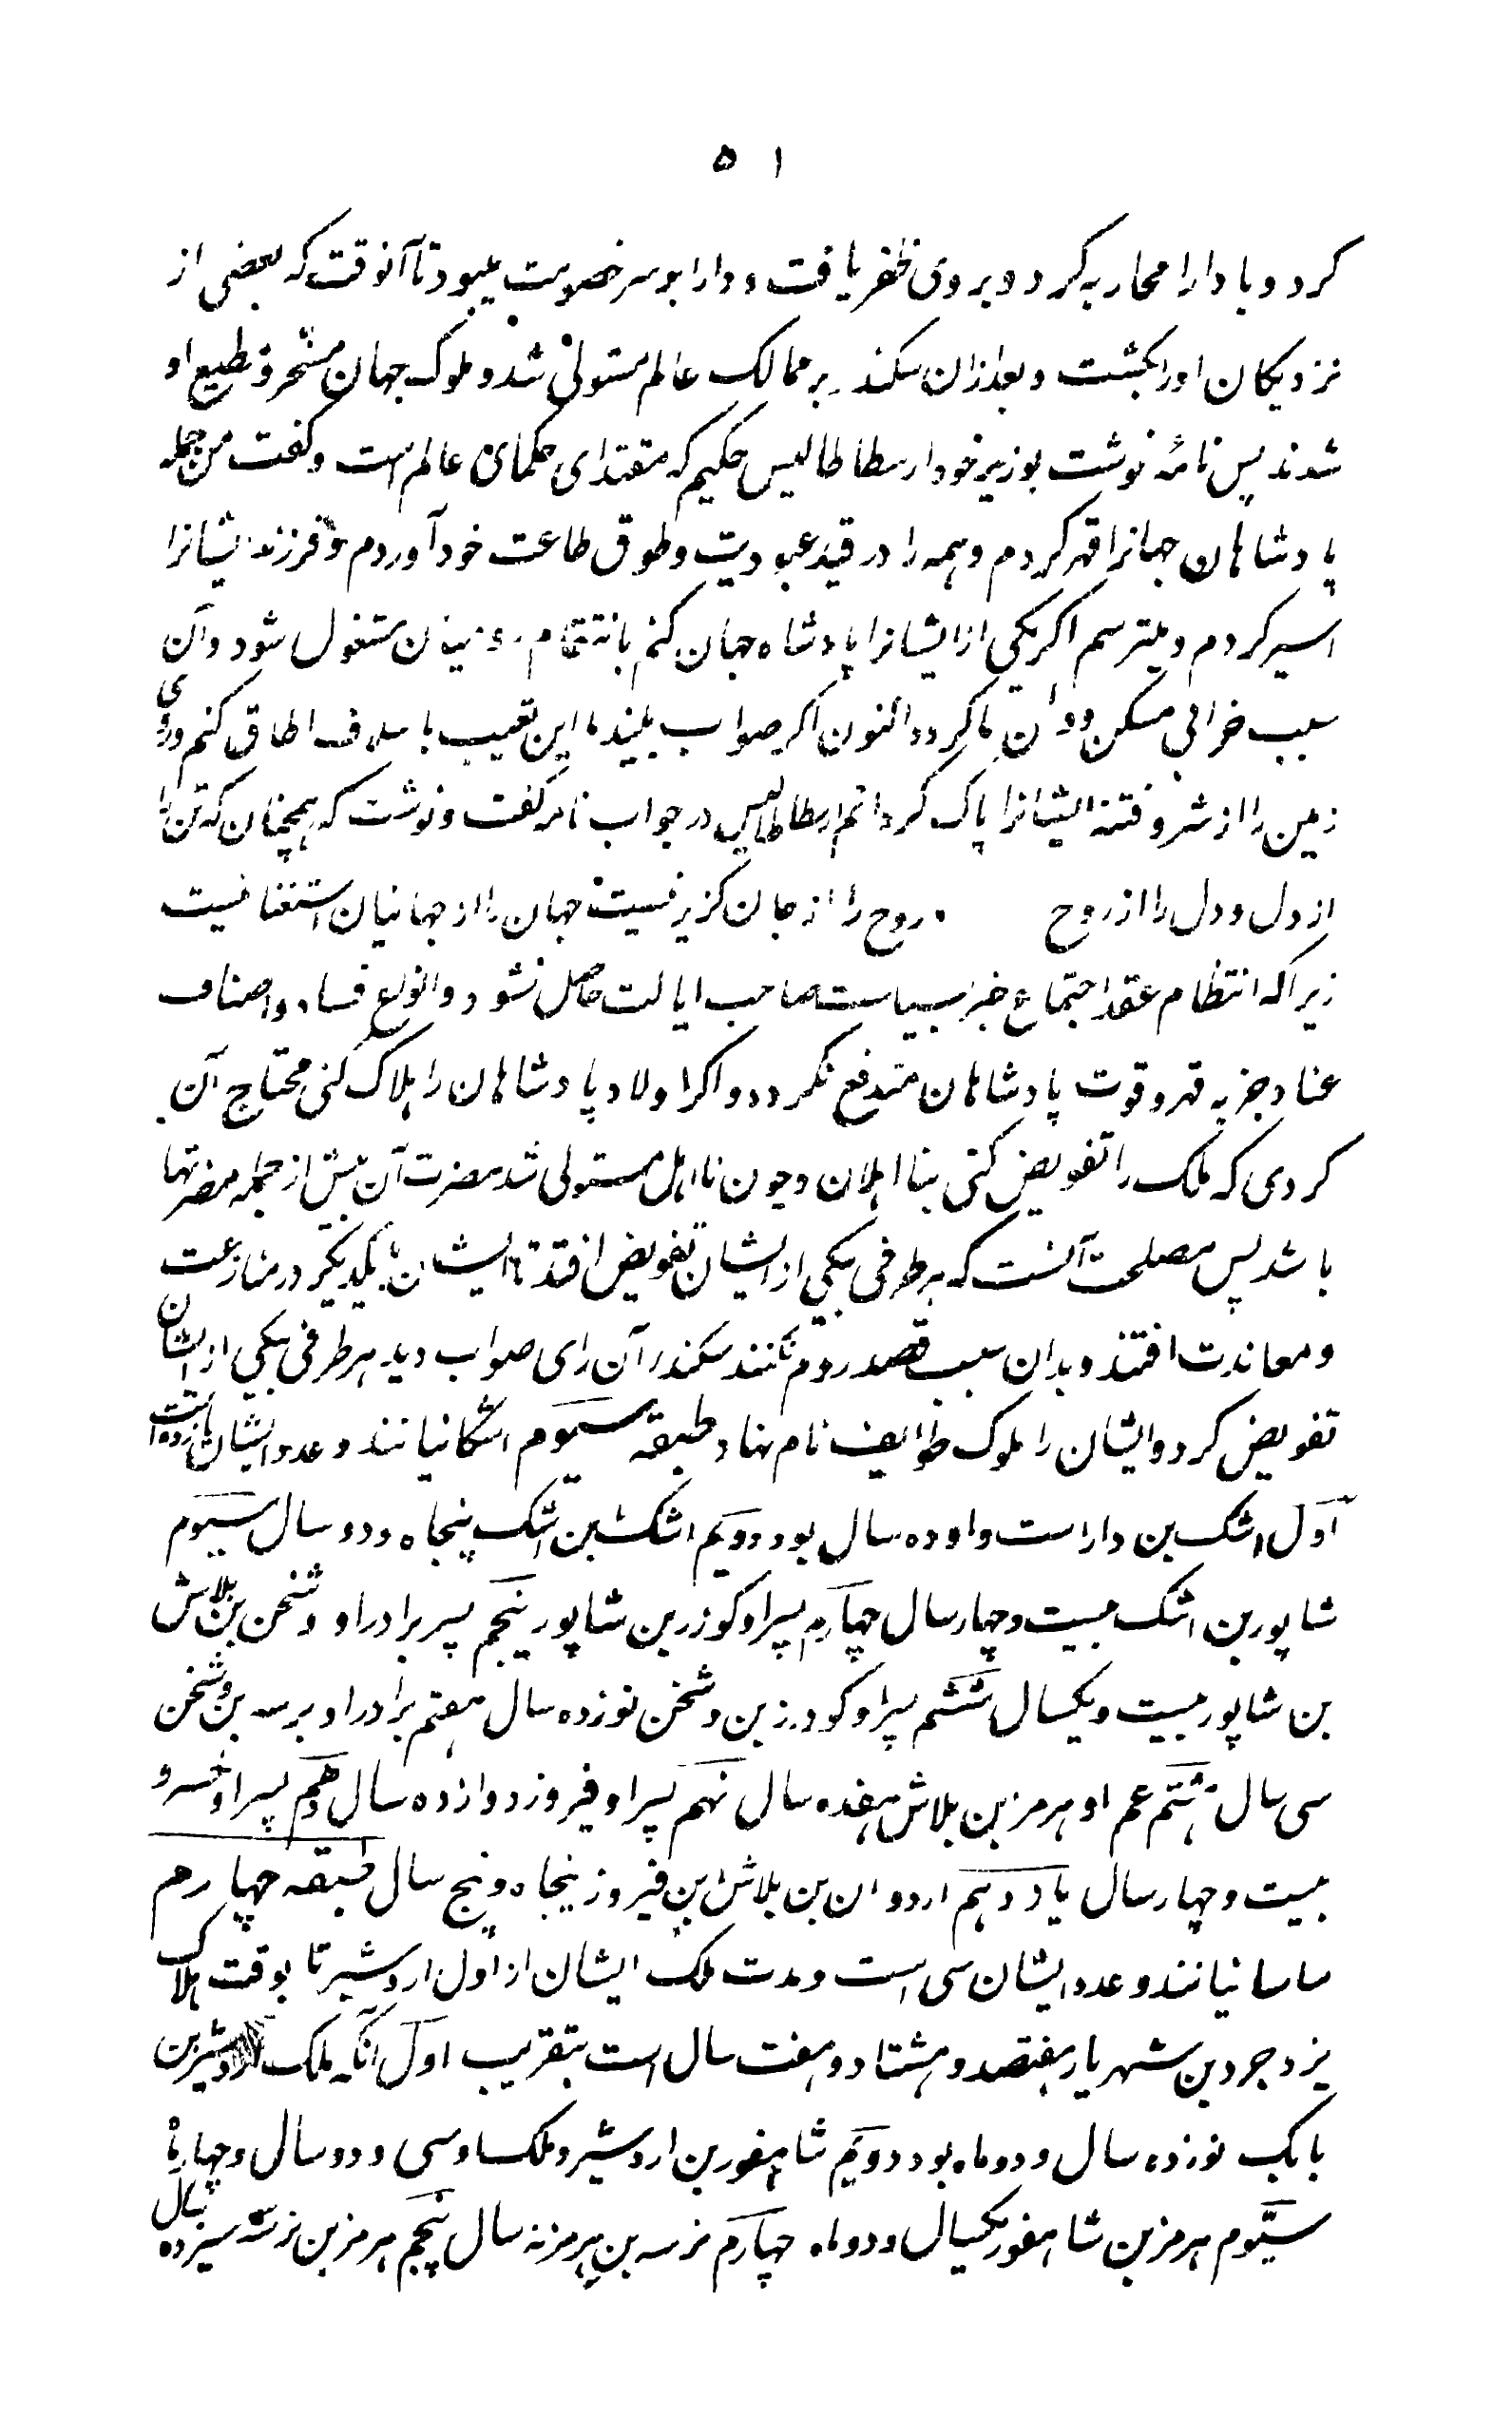 ۵۱
کرد و با دارا محاربه کرد و بروی ظفر یافت و دارا بر سر خصومت میبود تا آنوقت که بعضی از
نزدیکان اورا بکشت و بعد ازان سکندر بر ممالک عالم مستولی شد و ملوک جهان مسخر و مطیع او
شدند پس نامهٔ نوشت بوزیر خود ارسطاطالیس حکیم که مقتدای حکمای عالم است و کفت من جمله
پادشاهان جهانرا قهر کردم و همه را در قید عبودیت و طوق طاعت خود آوردم و فرزند یشانرا
اسیر کردم و میترسم اکر یکی از ایشانرا پادشاه جهان کنم بانتقام مشغول شود و آن
سبب خرابی مسکن کردد اکنون اکر صواب بیند این تعیب با سلاف الحاق کنم و روی
زمین را از شر و فتنه ایشانرا پاک کردانم ارسطاطالیس در جواب نامه کفت و نوشت که همچنان که تن را
از دل و دل را از روح و روح را از جان کزیر نیست جهان را از جهانیان استغنا نیست
زیرا که انتظام عقد اجتماع جز بسیاست صاحب ایالت حاصل نشود و انواع فساد و اصناف
عناد جز به قهر و قوت پادشاهان مندفع نکردد و اکر اولاد پادشاهان را هلاک کنی محتاج آن
کردی که ملک را تفویض کنی بنا اهلان و چون نااهل مستولی شد مضرت آن بیش از جمله مضرتها
باشد پس مصلحت آنست که هر طرفی بیکی از ایشان تفویض افتد تا ایشان بیکدیکر در منازعت
و معاندت افتند و بدان سبب قصد روم نکنند سکندر آن رای صواب دید هر طرفی بیکی از ایشان
تفویض کرد و ایشان را ملوک طوایف نام نهاد طبقه سیوم اشکانیانند و عدد ایشان یازده است
اول اشک بن داراست و او ده سال بود دویم اشک بن اشک پنجاه و دو سال سیوم
شاپور بن اشک بیست و چهار سال چهارم پسر او کوزر بن شاپور پنجم پسر برادر او وشخن بن بلاش
بن شاپور بیست و یکسال ششم پسر او کودرز بن وشخن نوزده سال هفتم برادر او برسه بن وشخن
سی سال هشتم عم او هرمز بن بلاش هفده سال نهم پسر او فیروز دوازده سال دهم پسر او خسرو
بیست و چهار سال یازدهم اردوان بن بلاش بن فیروز پنجاه و پنج سال طبقه چهارم
ساسانیانند و عدد ایشان سی است و مدت ملک ایشان از اول اردشیر تا بوقت هلاک
یزدجرد بن شهریار هفتصد و هشتاد و هفت سال است بتقریب اول آنکه ملک اردشیر بن
بابک نوزده سال و دو ماه بود دویم شاهفور بن اردشیر و ملک او سی و دو سال و چهار ماه
سیوم هرمز بن شاهفور یکسال و دو ماه چهارم نرسه بن هرمز نه سال پنجم هرمز بن نرسه سیزده سال